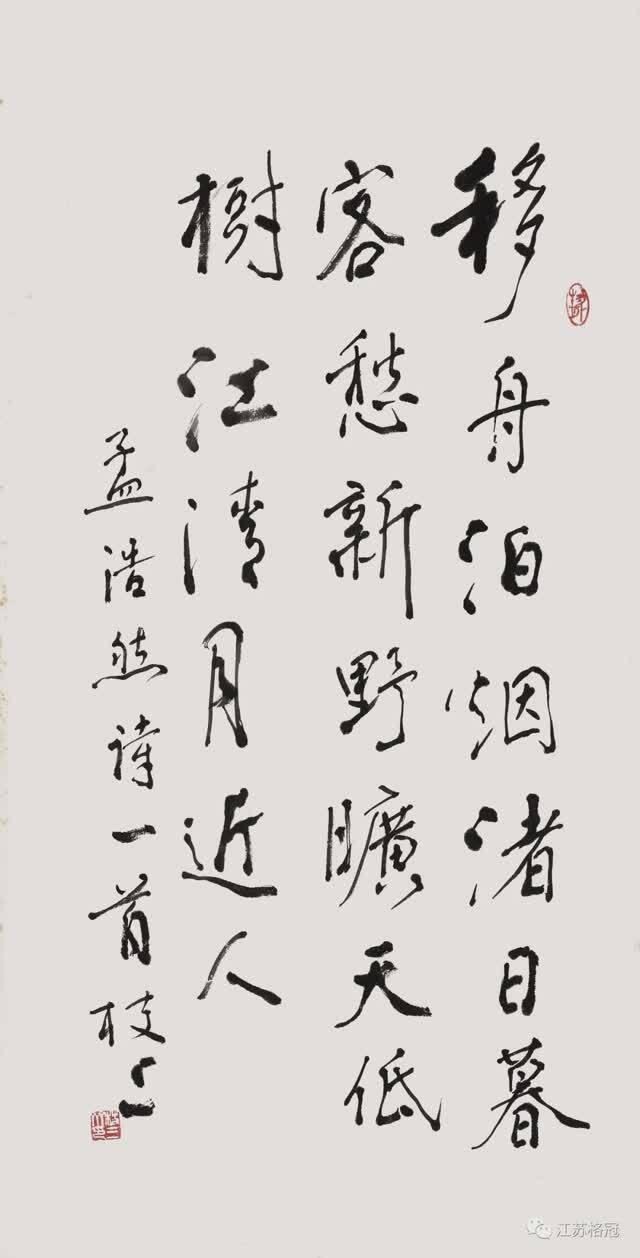 移舟泊烟渚日暮
客愁新野曠天低
樹江清月近人
孟浩然詩一首枝
江苏格冠